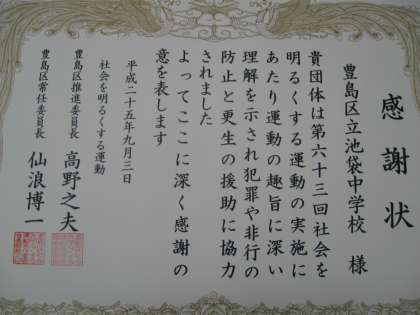 感謝状
豊島区立池袋中学校 様
貴団体は第六十三回社会を
明るくする運動の実施に
あたり運動の趣旨に深い
理解を示され犯罪や非行の
防止と更生の援助に協力
されました
よってここに深く感謝の
意を表します
平成二十五年九月三日
社会を明るくする運動
豊島区推進委員長 高野之夫
豊島区常任委員長 仙浪博一